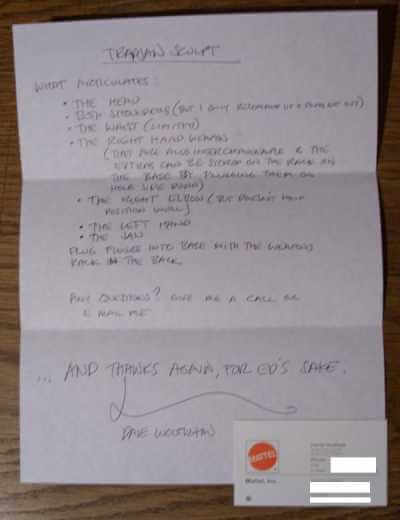 TRAPJAW SCULPT
WHAT ARTICULATES:
• THE HEAD
• BOTH SHOULDERS (BUT I ONLY
• THE WAIST (LIMITED)
• THE RIGHT HAND WEAPON
(THEY ARE ALSO INTERCHANGEABLE & THE
EXTRAS CAN BE STORED ON THE RACK ON
THE BASE BY PLUGGING THEM IN
HOLE SIDE DOWN)
• THE RIGHT ELBOW (BUT DOESN'T HOLD
POSITION WELL)
• THE LEFT HAND
• THE JAW
PLUG FIGURE INTO BASE WITH THE WEAPONS
RACK IN THE BACK.
ANY QUESTIONS? GIVE ME A CALL OR
E MAIL ME
... AND THANKS AGAIN, FOR ED'S SAKE.
DAVE WOLFRAM
MATTEL
Mattel, Inc.